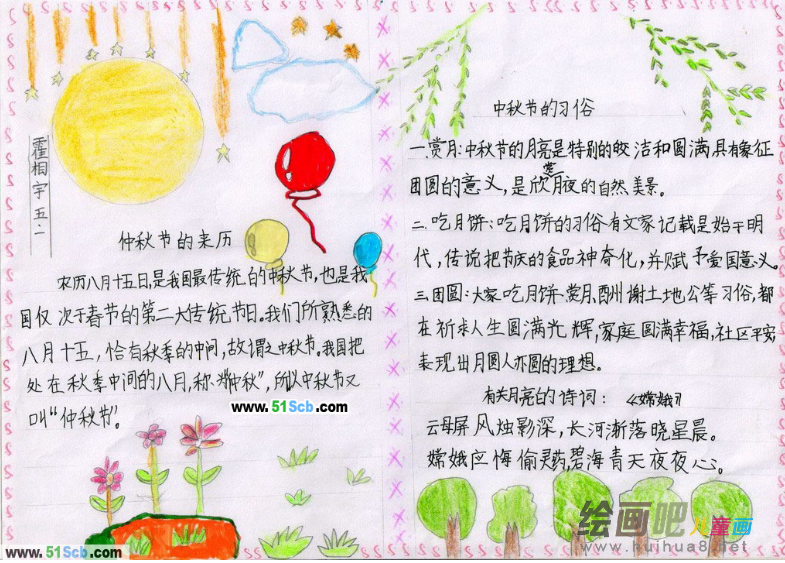 霍相宇五.二
仲秋节的来历
农历八月十五日,是我国最传统的中秋节,也是我
国仅次于春节的第二大传统节日。我们所熟悉的
八月十五,恰有秋季的中间,故谓之中秋节。我国把
处在秋季中间的八月,称为“仲秋”,所以中秋节又
叫“仲秋节”。
www.51Scb.com
www.51Scb.com
中秋节的习俗
一.赏月:中秋节的月亮是特别的皎洁和圆满具有象征
团圆的意义,是欣赏月夜的自然美景。
二.吃月饼:吃月饼的习俗有文家记载是始于明
代,传说把节庆的食品神奇化,并赋予爱国意义。
三.团圆:大家吃月饼、赏月、酬谢土地公等习俗,都
在祈求人生圆满光辉,家庭圆满幸福,社区平安
表现出月圆人亦圆的理想。
有关月亮的诗词:《嫦娥》
云母屏风烛影深,长河渐落晓星晨。
嫦娥应悔偷灵药,碧海青天夜夜心。
绘画吧儿童画
www.huihua8.net